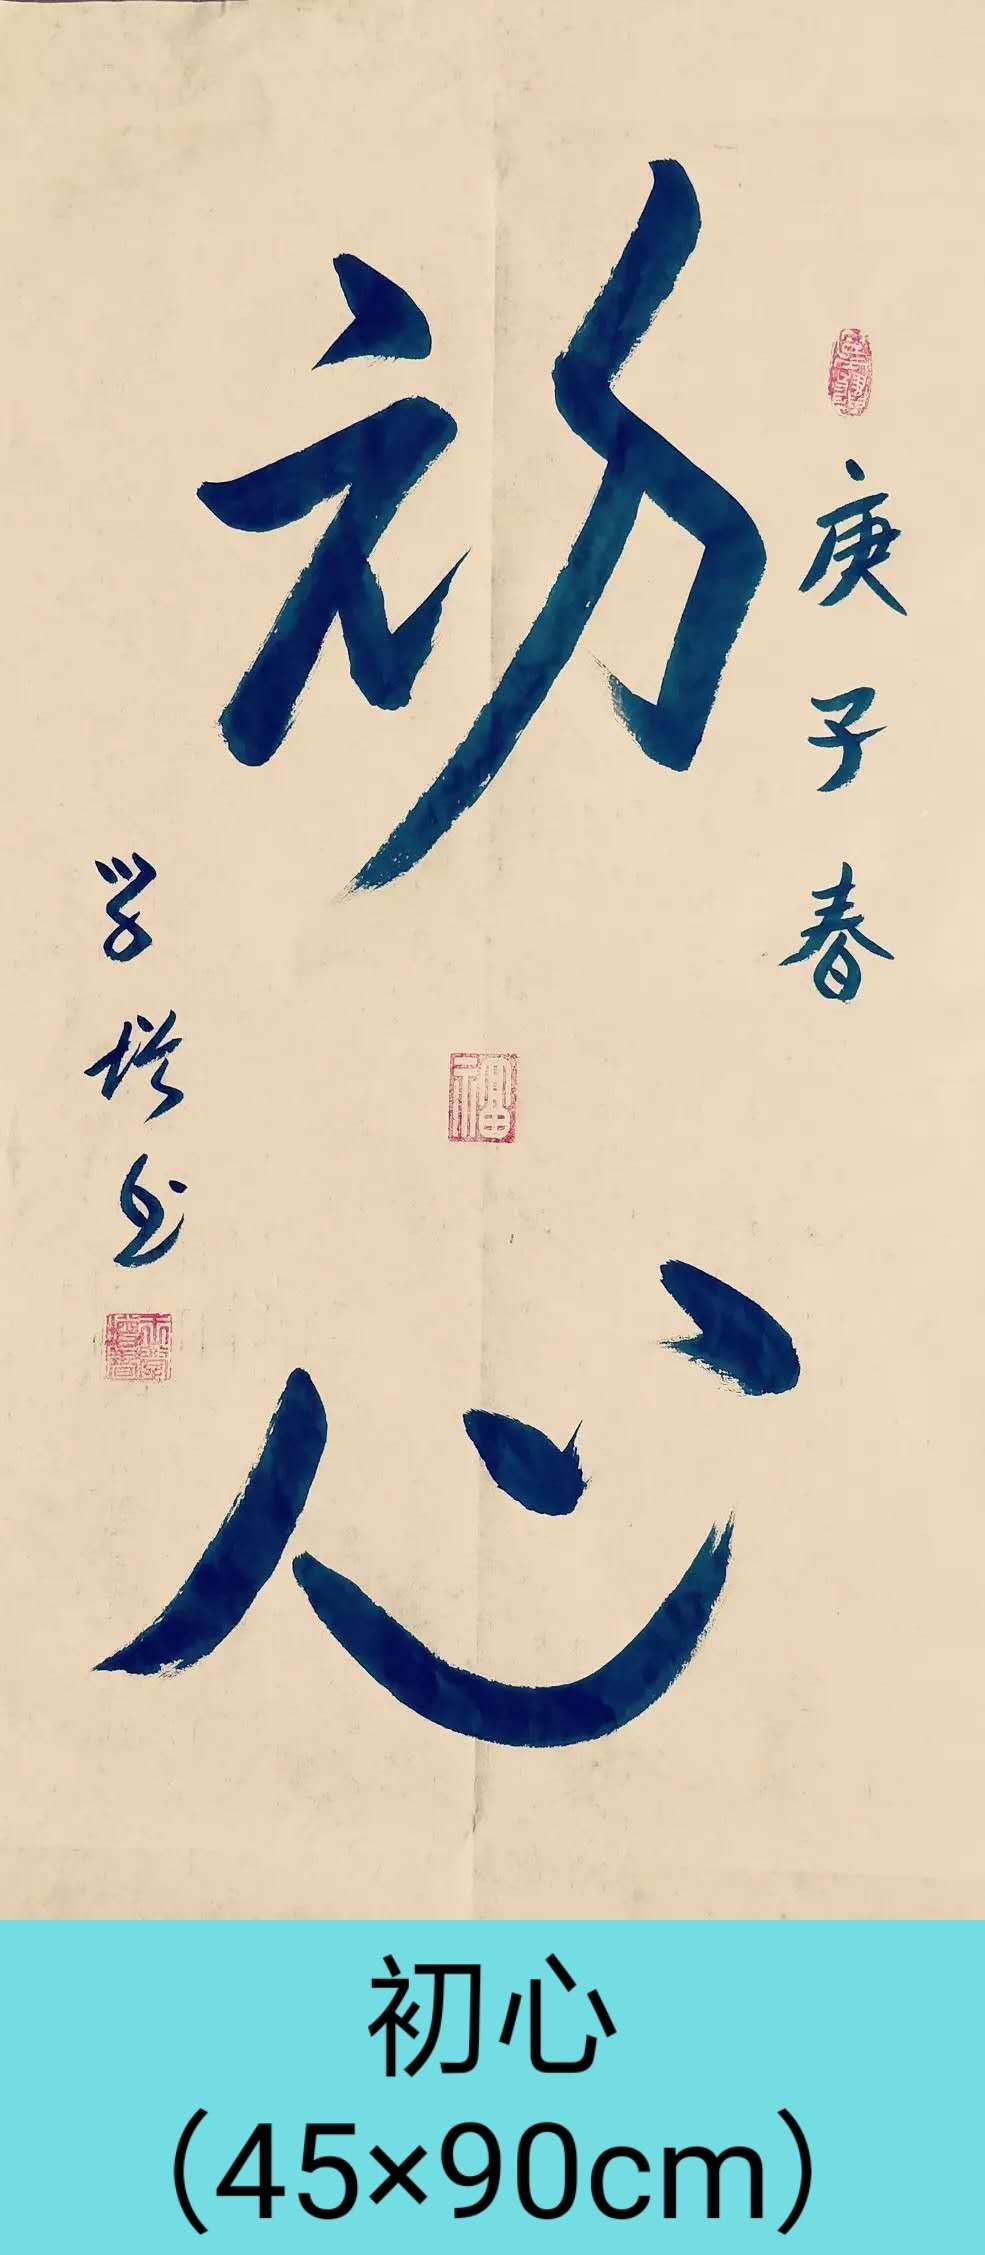 初心
庚子春
福
初心
（45×90cm）